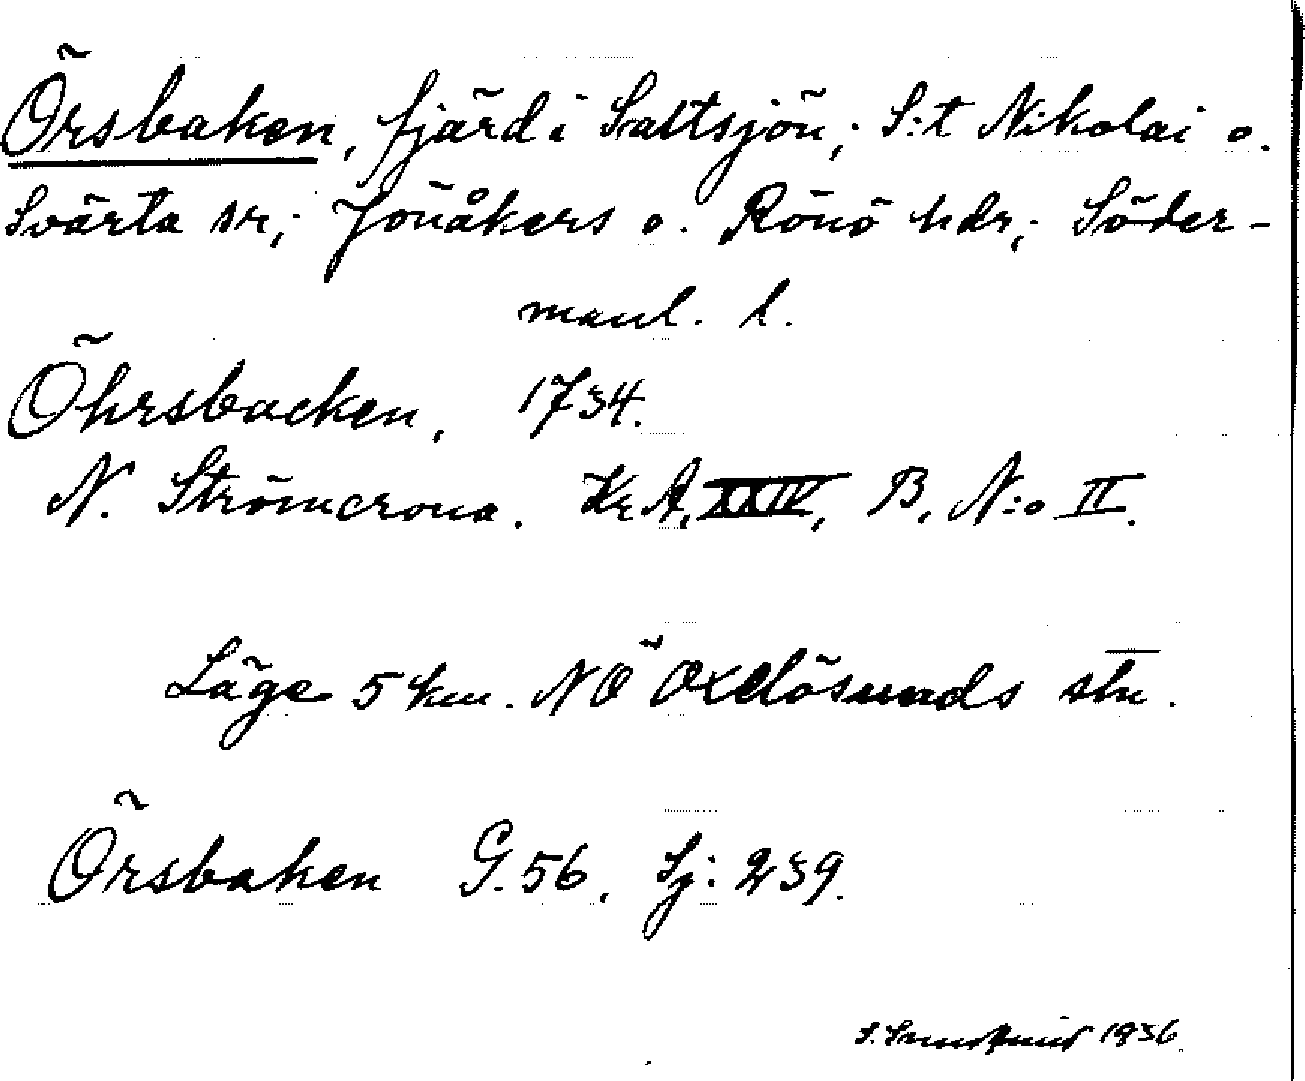 Örsbaken, fjärd i Saltsjön; S:t Nikolai o.
Svärta sr; Jönåkers o. Rönö hdr; Söder-
manl. l.
Öhrsbacken, 1734.
N. Strömcrona. Kr A, XXIV, B, N:o II.
Läge 5 km. NÖ Oxelösunds stn.
Örsbaken G. 56. Sj: 239.
1936